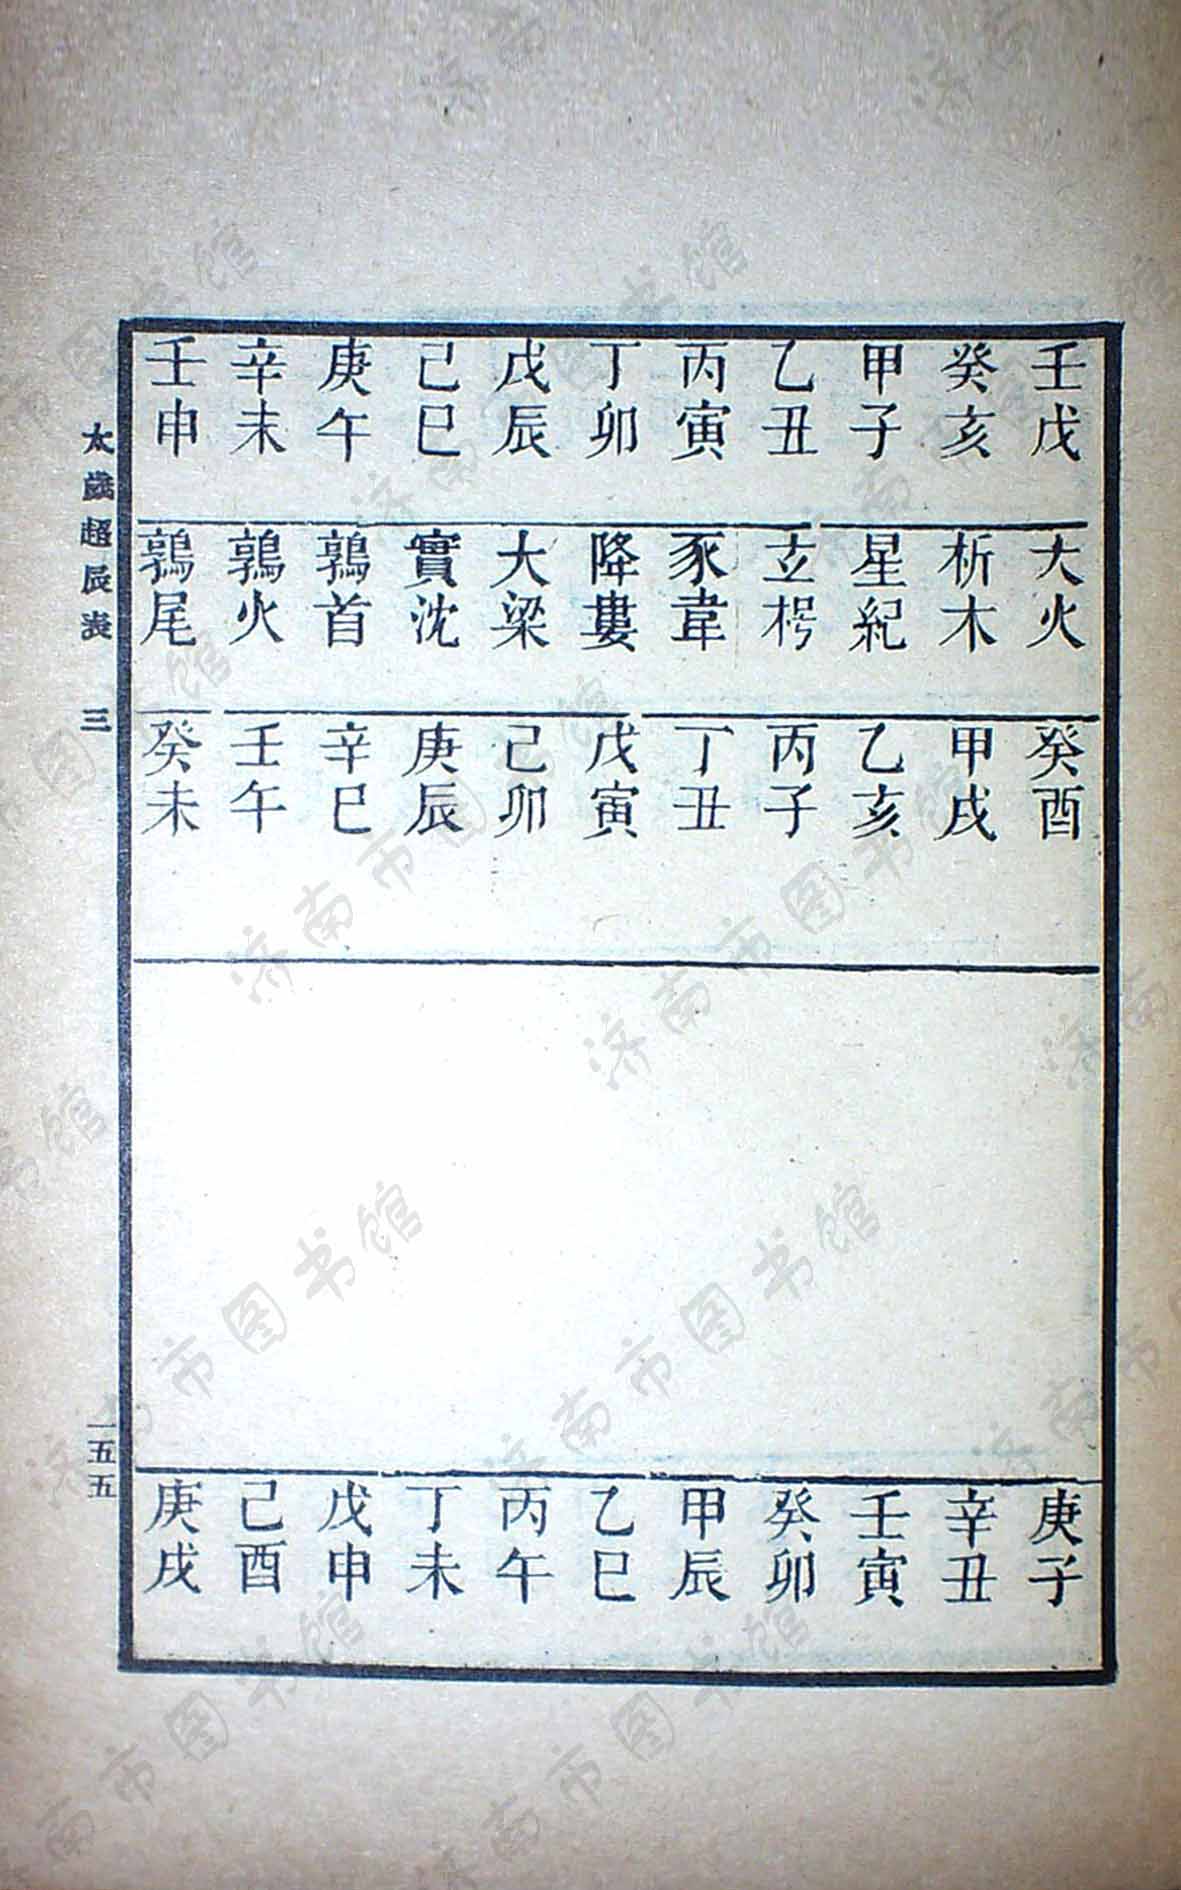 壬戌 大火 癸酉 庚子
癸亥 析木 甲戌 辛丑
甲子 星紀 乙亥 壬寅
乙丑 玄枵 丙子 癸卯
丙寅 豕韋 丁丑 甲辰
丁卯 降婁 戊寅 乙巳
戊辰 大梁 己卯 丙午
己巳 實沈 庚辰 丁未
庚午 鶉首 辛巳 戊申
辛未 鶉火 壬午 己酉
壬申 鶉尾 癸未 庚戌
太歲超辰表 三 一五五
济南市图书馆